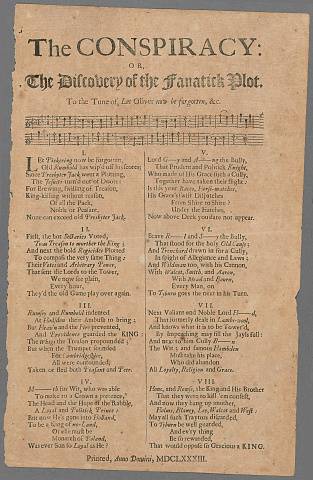 The CONSPIRACY:
OR,
The Discovery of the Fanatick Plot.
To the Tune of, Let Oliver now be forgotten, &c.
I.
LEt Pickering now be forgotten,
Old Rumbold has wip'd off his scores;
Since Presbyter Jack went a Plotting,
The Jesuite turn'd out of Doors:
For Brewing, Instilling of Treason,
King-killing without reason,
Of all the Pack,
Noble or Peasant,
None can exceed old Presbyter Jack.
II.
First, the hot Voted,
Tom Treason to murther the King;
And next the bold Regicides Plotted
To compass the very same Thing;
Their Votes and Arbitrary Power,
That sent the Lords to the Tower,
We now see plain,
Every hour,
They'd the old Game play over again.
III.
Rumsey and Rumbold indented
At Hodsdon there Ambush to bring;
But Heav'n and the Fire prevented,
And Providence guarded the KING:
The Whigs the Treason propounded;
But when the Trumpet sounded
For Cambridgshire,
All were confounded;
Taken or fled both Treason and Peer.
IV.
M—th for Wit, who was able
To make to a Crown a pretence,
The Head and the Hope of the Rabble,
A Loyal and Politick Prince:
But now He's gone into Holland,
To be a King of no-Land,
Or else must be
Monarch of Poland,
Was ever Son so Loyal as He?
V.
Lord G—y and A—ng the Bully,
That Prudent and Politick Knight,
Who made of His Grace such a Cully,
Together have taken their flight:
Is this your Races, Horse-matches,
His Grace's swift Dispatches
From Shire to Shire?
Under the Hatches,
Now above Deck you dare not appear.
VI.
Brave R—l and S—y the Bully,
That stood for the holy Old Cause;
And Trenchard drawn in for a Cully,
In spight of Allegiance and Laws;
And Wildman too, with his Cannon,
With Walcot, Smith, and Aaron,
With Mead and Bowen,
Every Man, on
To Tyburn goes the next in his Turn.
VII.
Next Valiant and Noble Lord H—d,
That formerly dealt in Lambs-wool,
And knows what it is to be Tower'd,
By Impeaching may fill the Jayls full:
And next to him Cully B—n
The Wit; and famous Hambden
Must take his place,
Who did abandon
All Loyalty, Religion and Grace.
VIII.
Hone, and Rouse, the King and His Brother
That they were to kill 'em confest,
And now they hang up another,
Holms, Blaney, Lee, Walcot and West:
May all such Traytors discarded,
To Tyburn be well guarded,
And ev'ry thing
Be so rewarded,
That would oppose so Gracious a KING.
Printed, Anno Domini, MDCLXXXIII.